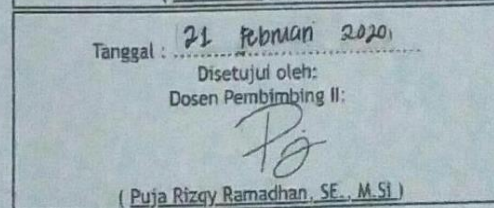 Tanggal : 21 Februari 2020
Disetujui oleh:
Dosen Pembimbing II:
( Puja Rizqy Ramadhan, SE., M.Si )